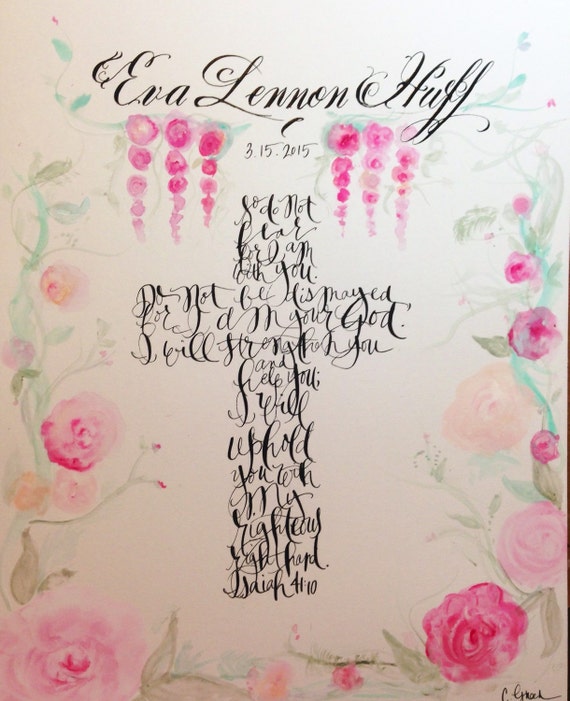 Eva Lennon Huff
3.15.2015
So do Not
fear
for I am
with you.
Do Not be dismayed
for I am your God.
I will strengthen you
and
help you;
I will
uphold
you with
My
righteous
right hand.
Isaiah 41:10
C.